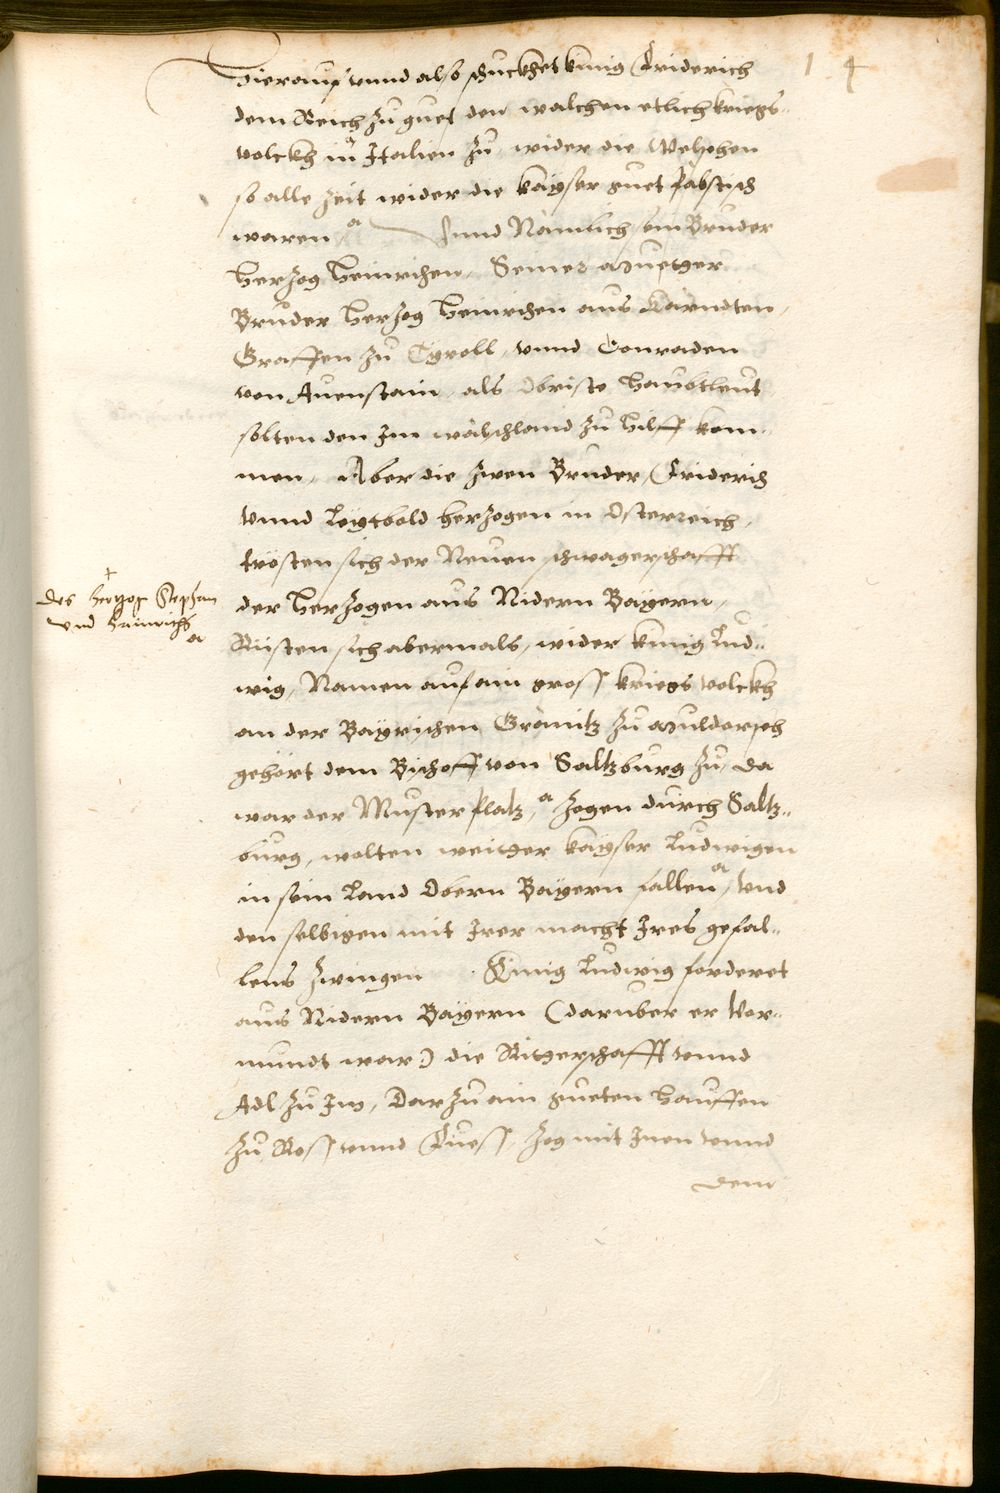 14
Hierauf vnnd also schuckhet künig Friderich
dem Reich zu guet den walchen etlich kriegs-
volckh in Italien zu, wider die Welschen
so alle zeit wider die kayser guet Päbstisch
waren, vnnd Nämblich sein Bruder
Herzog Heinrichen, Seiner Muetter
Bruder Herzog Heinrichen aus Kärndten,
Graffen zu Tyroll, vnnd Conraden
von Auenstain, als Obriste Haubtleut
solten den Im wälschland zu hilff kom-
men, Aber die zwen Bruder, Friderich
vnnd Leytbold herzogen in Osterreich,
trösten sich der Neuen schwagerschafft
der Herzogen aus Nidern Bayern,
Des Herzog Stephan
vnd Hainrichs
Rüsten sich abermals, wider künig Lud-
wig, Namen auf ain gross kriegs volckh
an der Bayrischen Gränitz zu Muldorf
gehört dem Bischoff von Saltzburg zu, da
war der Muster Platz, zogen durch Saltz-
burg, wolten weitter kayser Ludwigen
in sein Land Obern Bayern fallen, vnd
den selbigen mit Irer macht Ires gefal-
lens zwingen. Künig Ludwig forderet
aus Nidern Bayern (daruber er Vor-
mundt war) die Ritterschafft vnnd
Adl zu Im, Darzu ain gueten Hauffen
zu Ross vnnd Fuess, zog mit Inen vnnd
dem